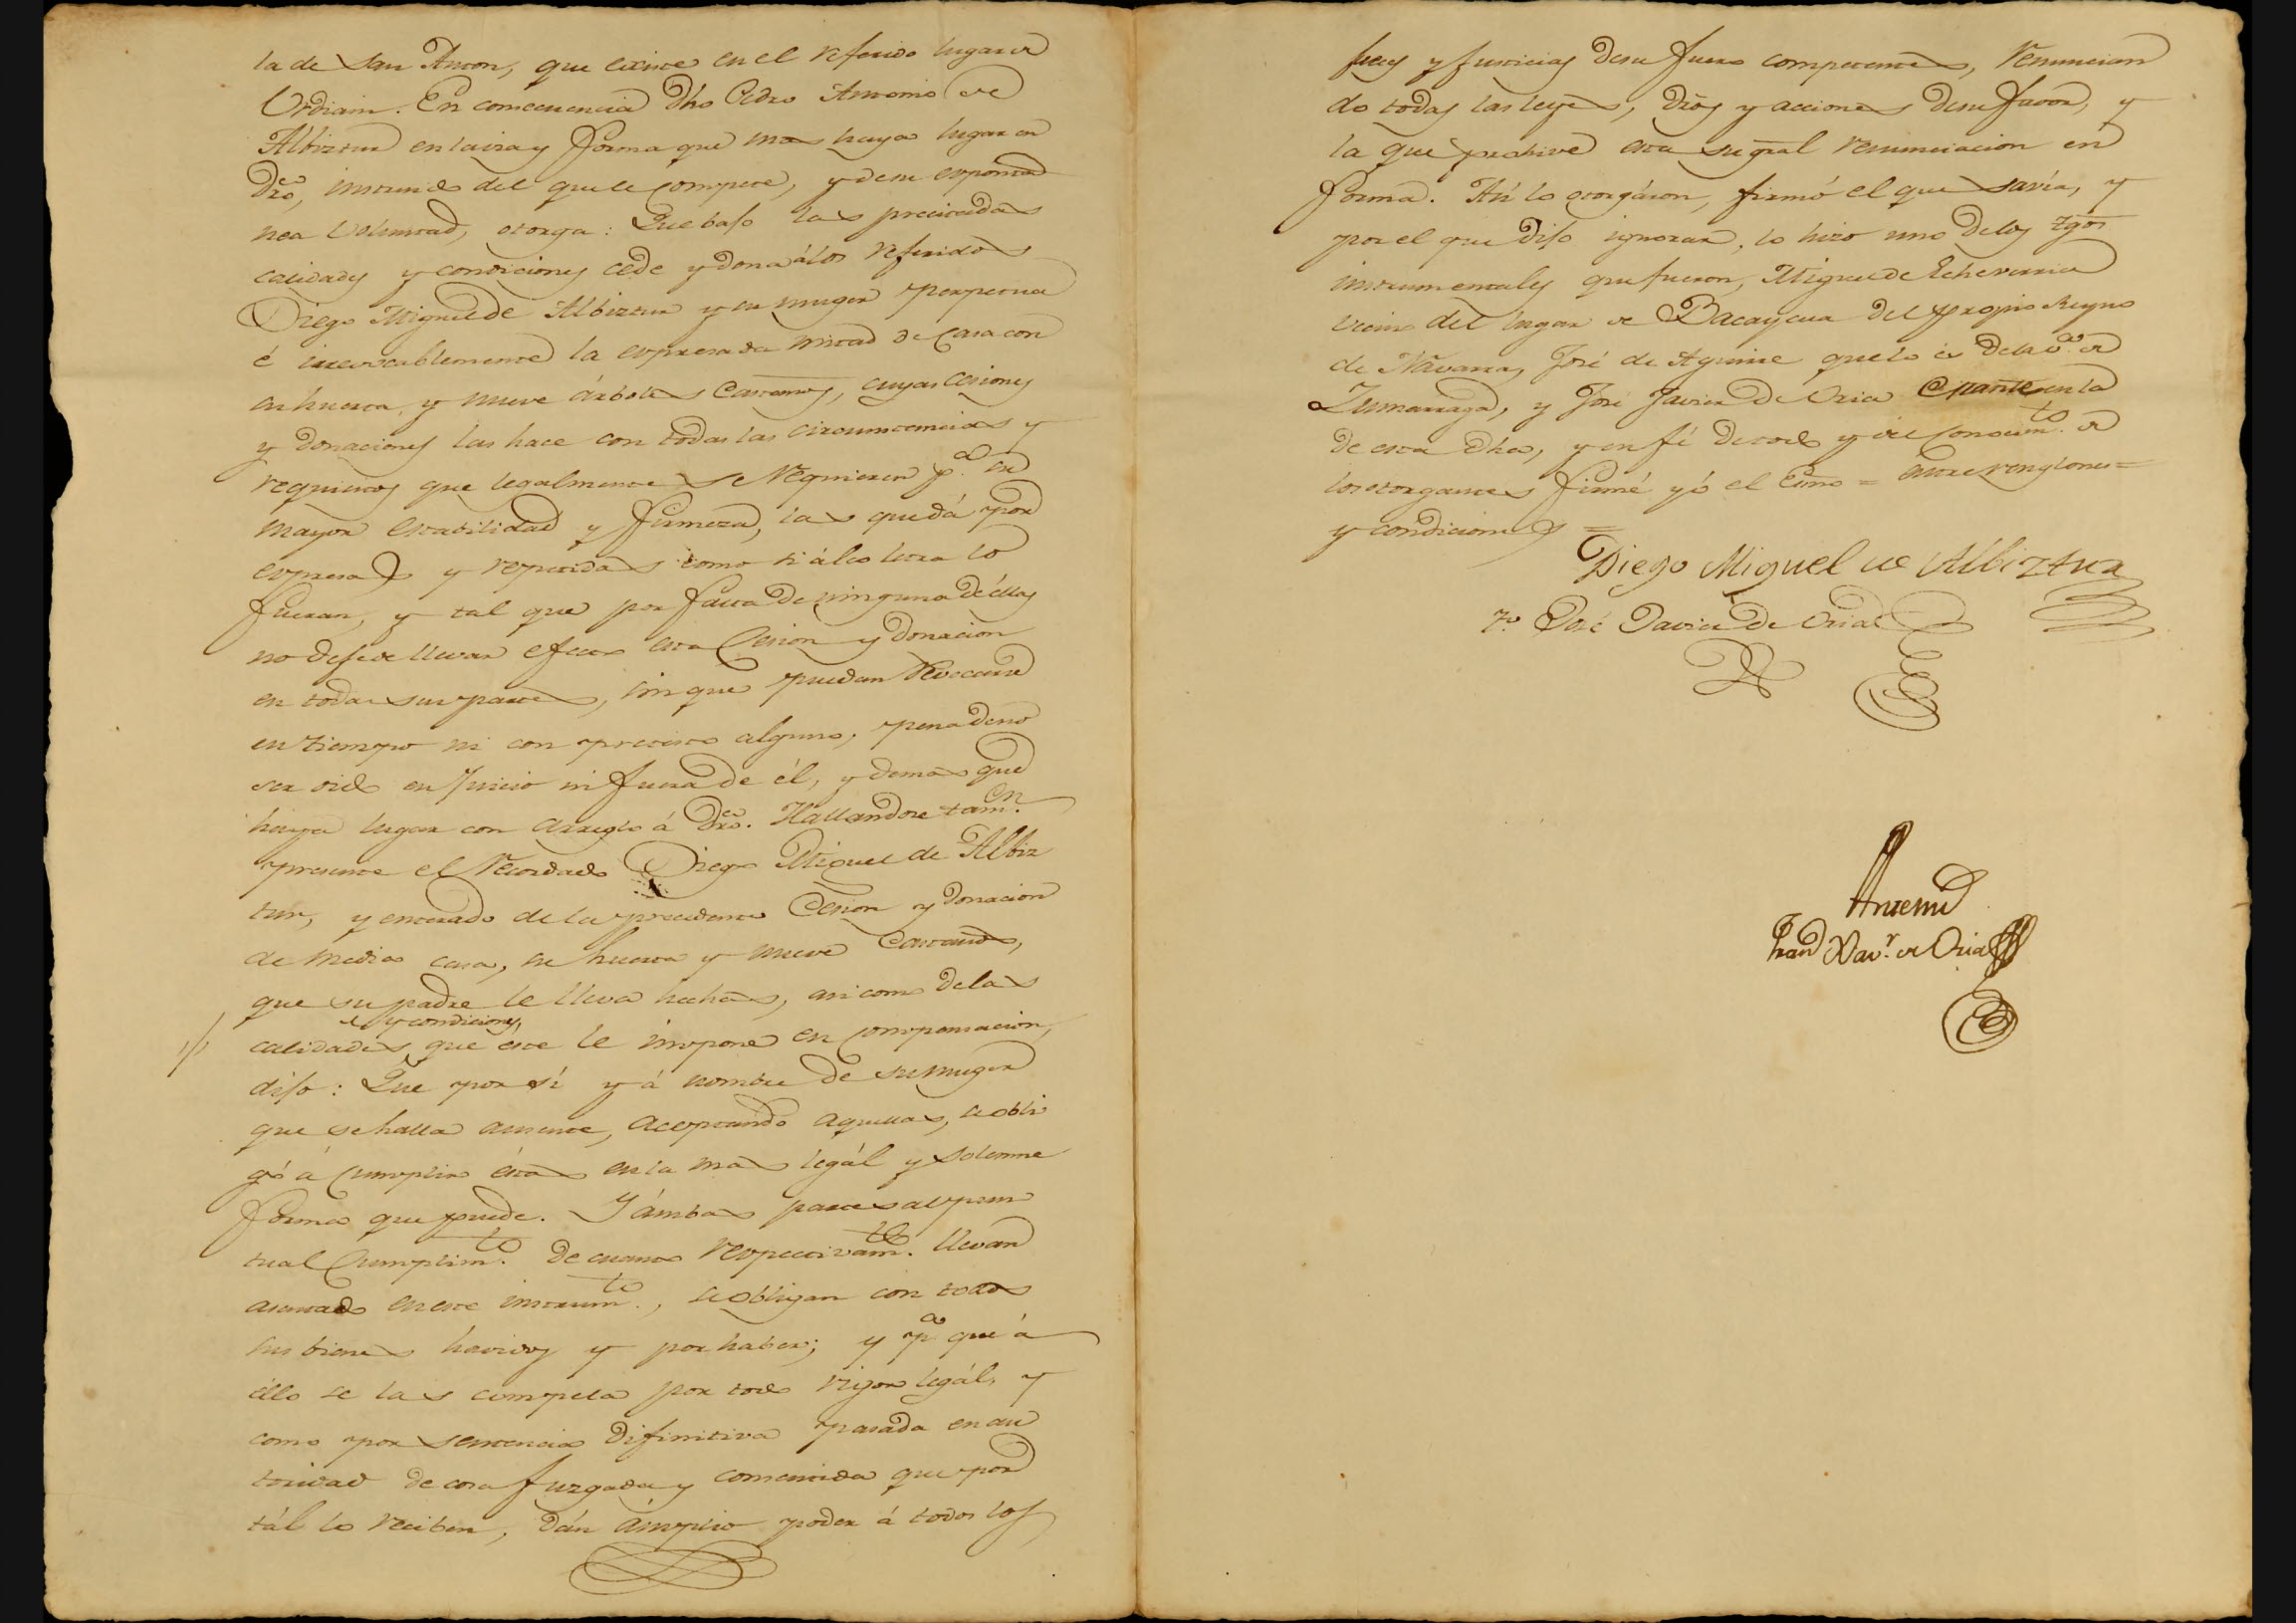 ta de San Anton, que existe en el referido lugar de
Urdiain. En consecuencia dho Pedro Antonio de
Albiztur en la via y forma que mas haya lugar en
Dro, instruido del que le compete, y de su espontá
nea voluntad, otorga: Que bajo las precitadas
calidades y condiciones cede y dona á los referidos
Diego Miguel de Albiztur y su muger perpetua
é irrevocablemente la expresada mitad de Casa con
su huerta, y nueve árboles Castaños, cuyas cesiones
y donaciones las hace con todas las circunstancias y
requisitos que legalmente se requieren p.a su
mayor estabilidad y firmeza, las que dá por
expresas y repetidas como si á la letra lo
fueran, y tal que por falta de ninguna de éllas
no deje de llevar efecto esta Cesion y donacion
en todas sus partes, sin que puedan revocarse
en tiempo ni con pretesto alguno, pena de no
ser oido en Juicio ni fuera de él, y demas que
haya lugar con arreglo á Dro. Hallandose tam.en
presente el recordado Diego Miguel de Albiz
tur, y enterado de la precedente Cesion y donacion
de media casa, su huerta y nueve Castaños,
que su padre le lleva hechas, asi como de las
y condiciones
calidades que éste le impone en compensacion,
dijo: Que por sí y á nombre de su muger
que se halla ausente, aceptando aquellas, se obli
gó á cumplir éstas en la mas legál y solemne
forma que puede. Y ámbas partes al pun
tual Cumplim.to de cuanto respectivam.te llevan
asentado en este instrum.to, se obligan con todos
sus bienes havidos y por haber; y p.a que á
éllo se las compela por todo rigor legál, y
como por sentencia difinitiva pasada en au
toridad de cosa Juzgada y consentida que por
tál lo reciben, dán ámplio poder á todos los
Jueces y Justicias de su fuero competente, renuncian
do todas las leyes, dros y acciones de su favor, y
la que prohive esta su gral renunciacion en
forma. Así lo otorgáron, firmó el que savía, y
por el que dijo ignorar, lo hizo uno de los tgos
instrumentales que fueron, Miguel de Echeverria
vecino del lugar de Bacaycua del propio Reyno
de Navarra, José de Aguirre que lo és de la v.a de
Zumarraga, y José Javier de Oria Epante en la
de esta dha, y en fé de todo y del conocim.to de
los otorgantes firmé yó el Esno = entre renglones =
y condiciones =
Diego Miguel de Albiztur
T.o José Javier de Oria
Antemi
Fran.co Xav.r de Oria